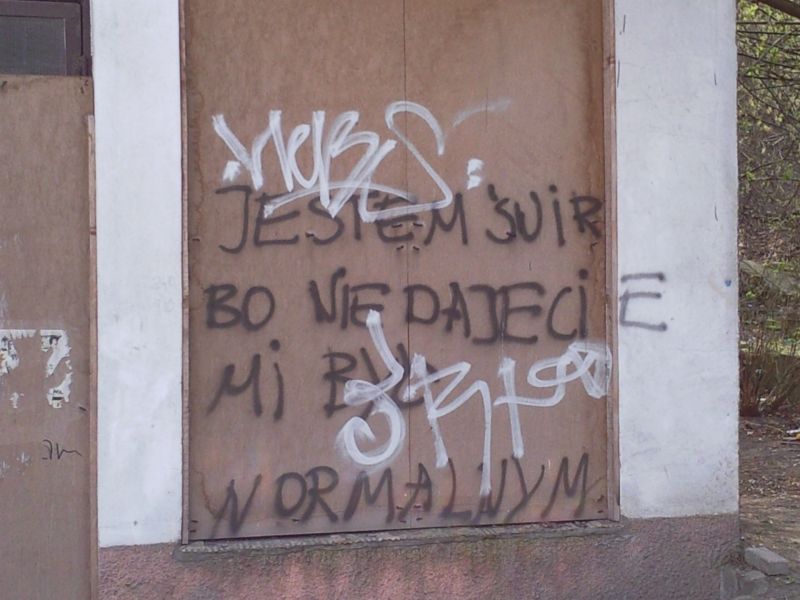 JESTEM ŚWIR
BO NIE DAJECIE
Mi BYĆ
NORMALNYM